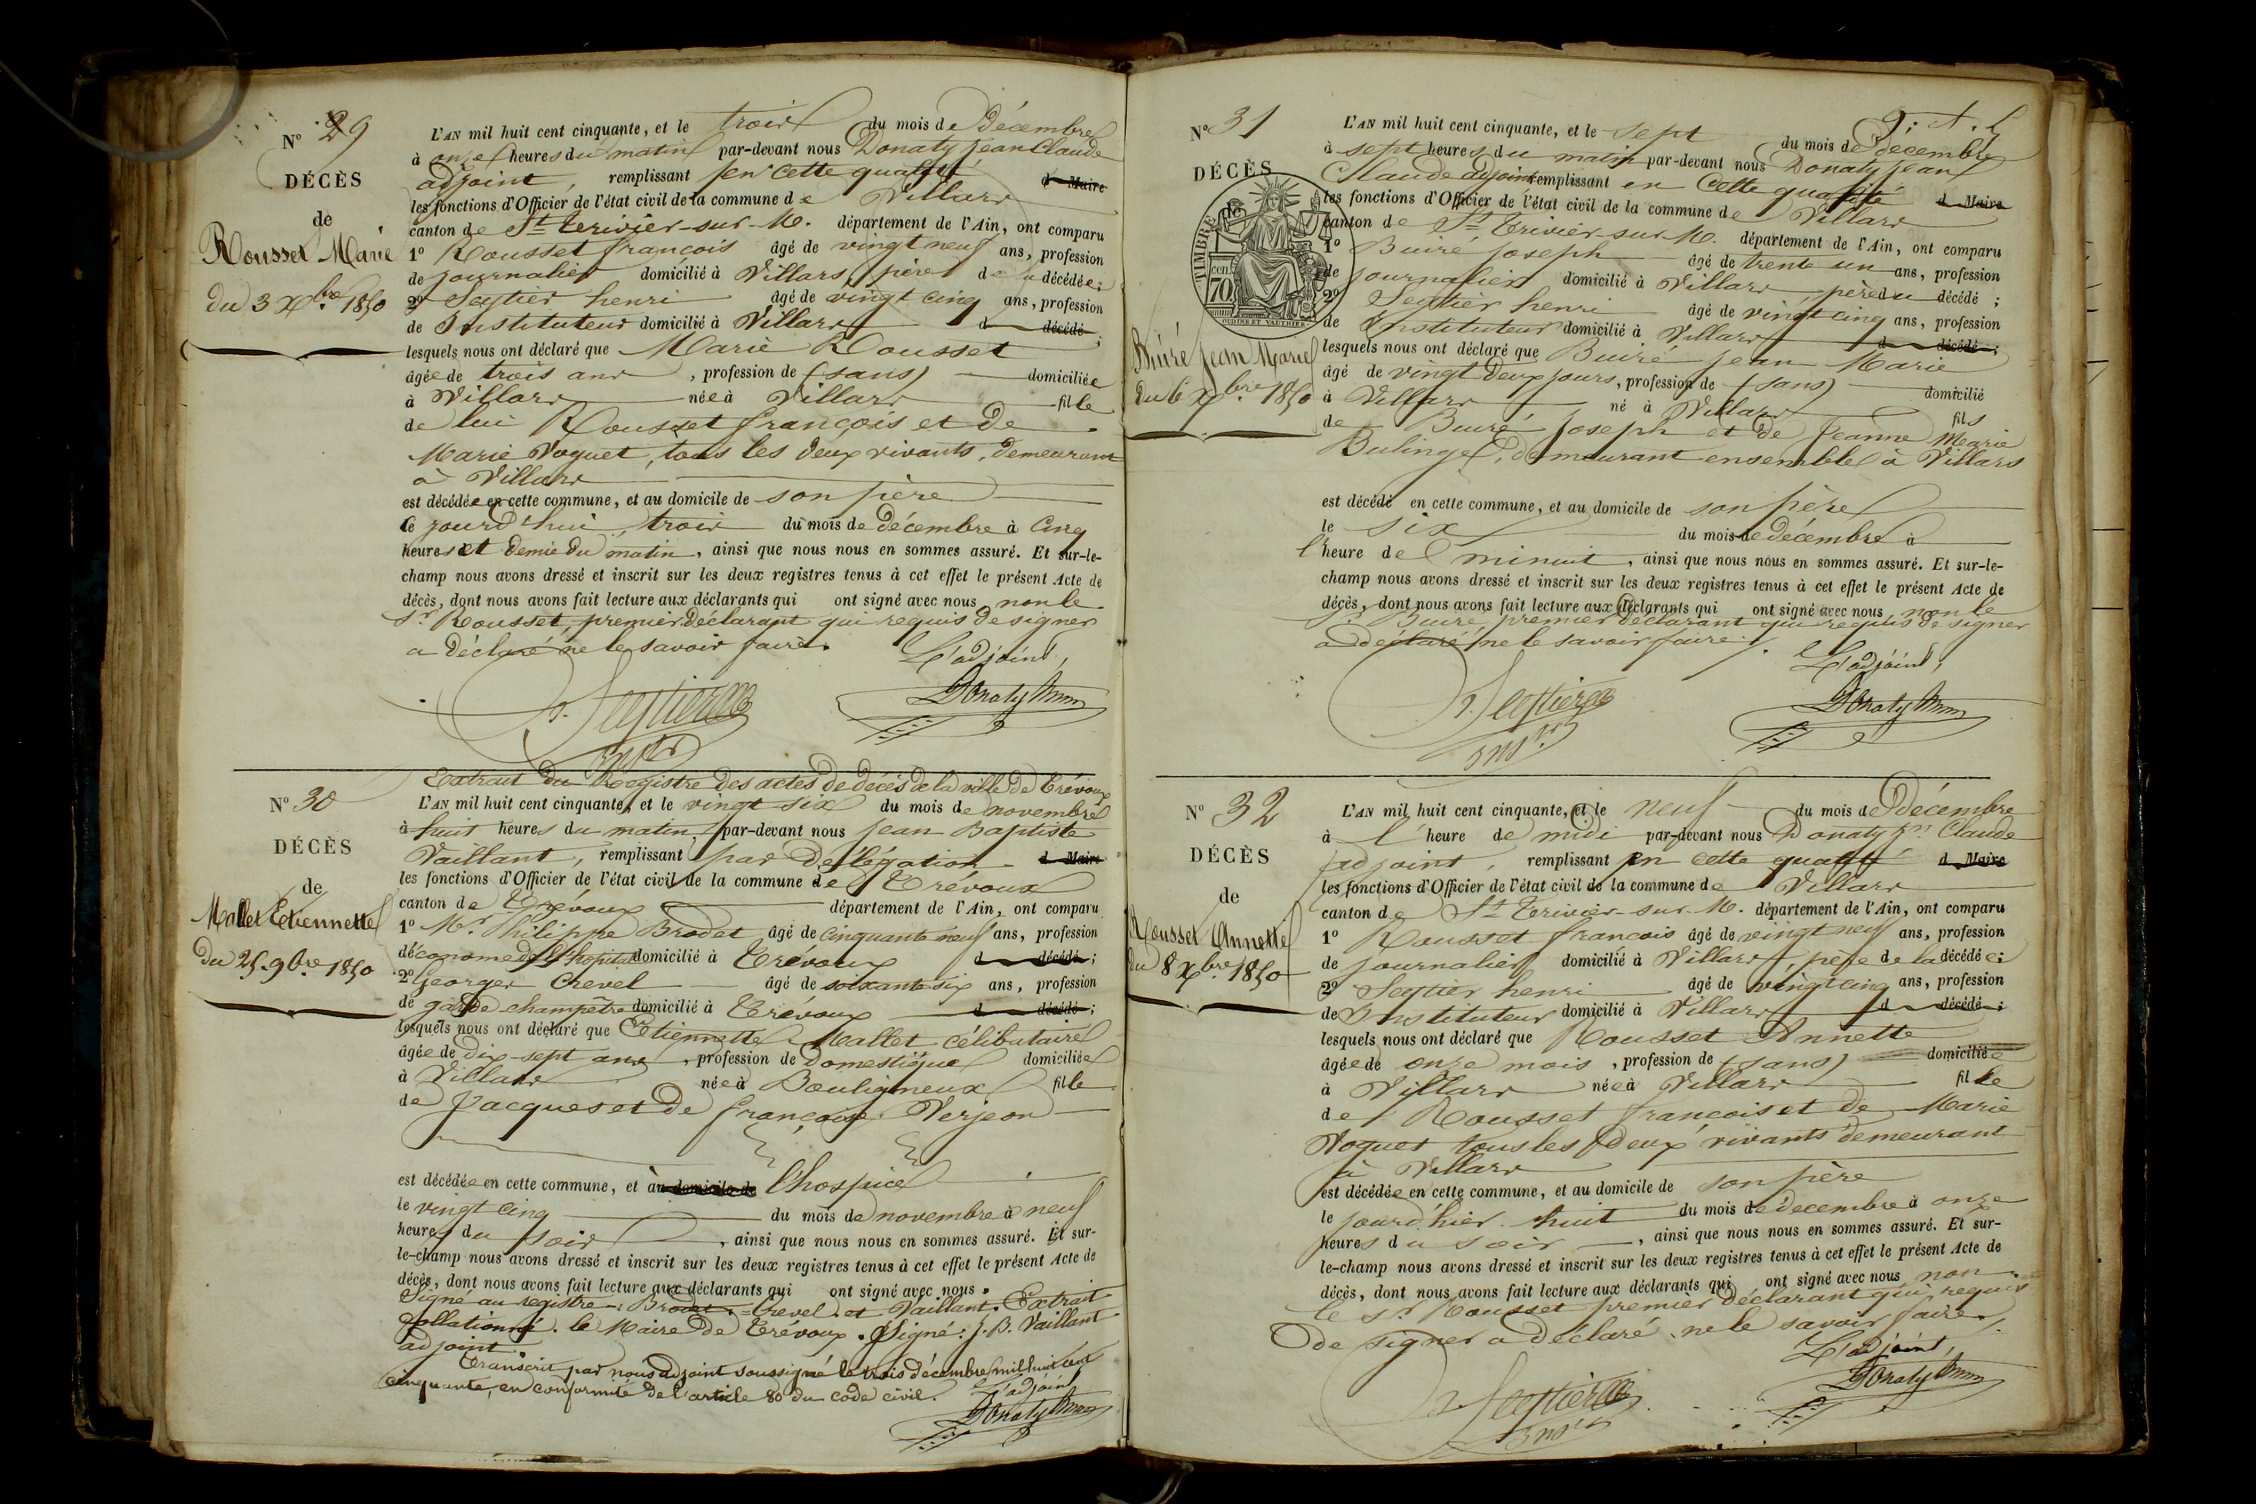 N° 29
DÉCÈS
de
Rousset Marie
du 3 Xbre 1850
L'AN mil huit cent cinquante, et le trois du mois de décembre
à onze heures du matin par-devant nous Donaty jean Claude
adjoint, remplissant en cette qualité d Maire
les fonctions d'Officier de l'état civil de la commune de Villars
canton de St trivier-sur-M. département de l'Ain, ont comparu
1° Rousset françois âgé de vingt neuf ans, profession
de journalier domicilié à Villars père de la décédée;
2° Seytier henri âgé de vingt cinq ans, profession
de Instituteur domicilié à Villars d décédé;
lesquels nous ont déclaré que Marie Rousset
âgée de trois ans, profession de (sans) domiciliée
à Villars née à Villars fille
de lui Rousset françois et de
Marie Voguet, tous les deux vivants, demeurant
à Villars
est décédée en cette commune, et au domicile de son père
le jourd'hui trois du mois de décembre à cinq
heures et demie du matin, ainsi que nous nous en sommes assuré. Et sur-le-
champ nous avons dressé et inscrit sur les deux registres tenus à cet effet le présent Acte de
décès, dont nous avons fait lecture aux déclarants qui ont signé avec nous non le
Sr Rousset, premier déclarant qui requis de signer
a déclaré ne le savoir faire.
L'adjoint,
Donaty
N° 30
DÉCÈS
de
Mallet Etiennette
du 25 9bre 1850
Extrait du Registre des actes de décès de la ville de Trévoux
L'AN mil huit cent cinquante, et le vingt six du mois de novembre
à huit heures du matin par-devant nous jean Baptiste
Vaillant, remplissant par délégation d Maire
les fonctions d'Officier de l'état civil de la commune de Trévoux
canton de Trévoux département de l'Ain, ont comparu
1° Mr Philippe Brodet âgé de cinquante neuf ans, profession
d'économe de l'hôpital domicilié à Trévoux d décédé;
2° Georges Crevel âgé de soixante six ans, profession
de garde champêtre domicilié à Trévoux d décédé;
lesquels nous ont déclaré que Etiennette Mallet célibataire
âgée de dix-sept ans, profession de domestique domiciliée
à Villars née à Bouligneux fille
de Jacques et de françoise Verjeon
est décédée en cette commune, et au domicile de l'hospice
le vingt cinq du mois de novembre à neuf
heures du soir, ainsi que nous nous en sommes assuré. Et sur-
le-champ nous avons dressé et inscrit sur les deux registres tenus à cet effet le présent Acte de
décès, dont nous avons fait lecture aux déclarants qui ont signé avec nous.
Signé au registre: Brodet. Crevel et Vaillant. Extrait
Collationné. le Maire de Trévoux. Signé: J. B. Vaillant
adjoint.
Transcrit par nous adjoint soussigné le trois décembre mil huit cent
cinquante, en conformité de l'article 80 du code civil.
L'adjoint
Donaty
N° 31
DÉCÈS
de
TIMBRE
70 cen
OUDINE ET VAUTHIER
Buiré Jean Marie
du 6 Xbre 1850
L'AN mil huit cent cinquante, et le sept du mois de décembre
à sept heures du matin par-devant nous Donaty jean
Claude adjoint remplissant en cette qualité d Maire
les fonctions d'Officier de l'état civil de la commune de Villars
canton de St Trivier-sur-M. département de l'Ain, ont comparu
1° Buiré joseph âgé de trente un ans, profession
de journalier domicilié à Villars père du décédé;
2° Seytier henri âgé de vingt cinq ans, profession
de Instituteur domicilié à Villars d décédé;
lesquels nous ont déclaré que Buiré jean Marie
âgé de vingt deux jours, profession de (sans) domicilié
à Villars né à Villars fils
de Buiré joseph et de Jeanne Marie
Bulinge, demeurant ensemble à Villars
est décédé en cette commune, et au domicile de son père
le six du mois de décembre à
l'heure de minuit, ainsi que nous nous en sommes assuré. Et sur-le-
champ nous avons dressé et inscrit sur les deux registres tenus à cet effet le présent Acte de
décès, dont nous avons fait lecture aux déclarants qui ont signé avec nous non le
Sr Buiré, premier déclarant qui requis de signer
a déclaré ne le savoir faire.
L'adjoint,
Donaty
N° 32
DÉCÈS
de
Rousset Annette
du 8 Xbre 1850
L'AN mil huit cent cinquante, et le neuf du mois de décembre
à l'heure de midi par-devant nous Donaty jn Claude
adjoint, remplissant en cette qualité d Maire
les fonctions d'Officier de l'état civil de la commune de Villars
canton de St Trivier-sur-M. département de l'Ain, ont comparu
1° Rousset francois âgé de vingt neuf ans, profession
de journalier domicilié à Villars, père de la décédée;
2° Seytier henri âgé de vingt cinq ans, profession
de Instituteur domicilié à Villars d décédé;
lesquels nous ont déclaré que Rousset Annette
âgée de onze mois, profession de (sans) domiciliée
à Villars née à Villars fille
de Rousset francois et de Marie
Voguet tous les deux vivants demeurant
à Villars
est décédée en cette commune, et au domicile de son père
le jour d'hier huit du mois de décembre à onze
heures du soir, ainsi que nous nous en sommes assuré. Et sur-
le-champ nous avons dressé et inscrit sur les deux registres tenus à cet effet le présent Acte de
décès, dont nous avons fait lecture aux déclarants qui ont signé avec nous non
le Sr Rousset premier déclarant qui requis
de signer a déclaré ne le savoir faire.
L'adjoint,
Donaty